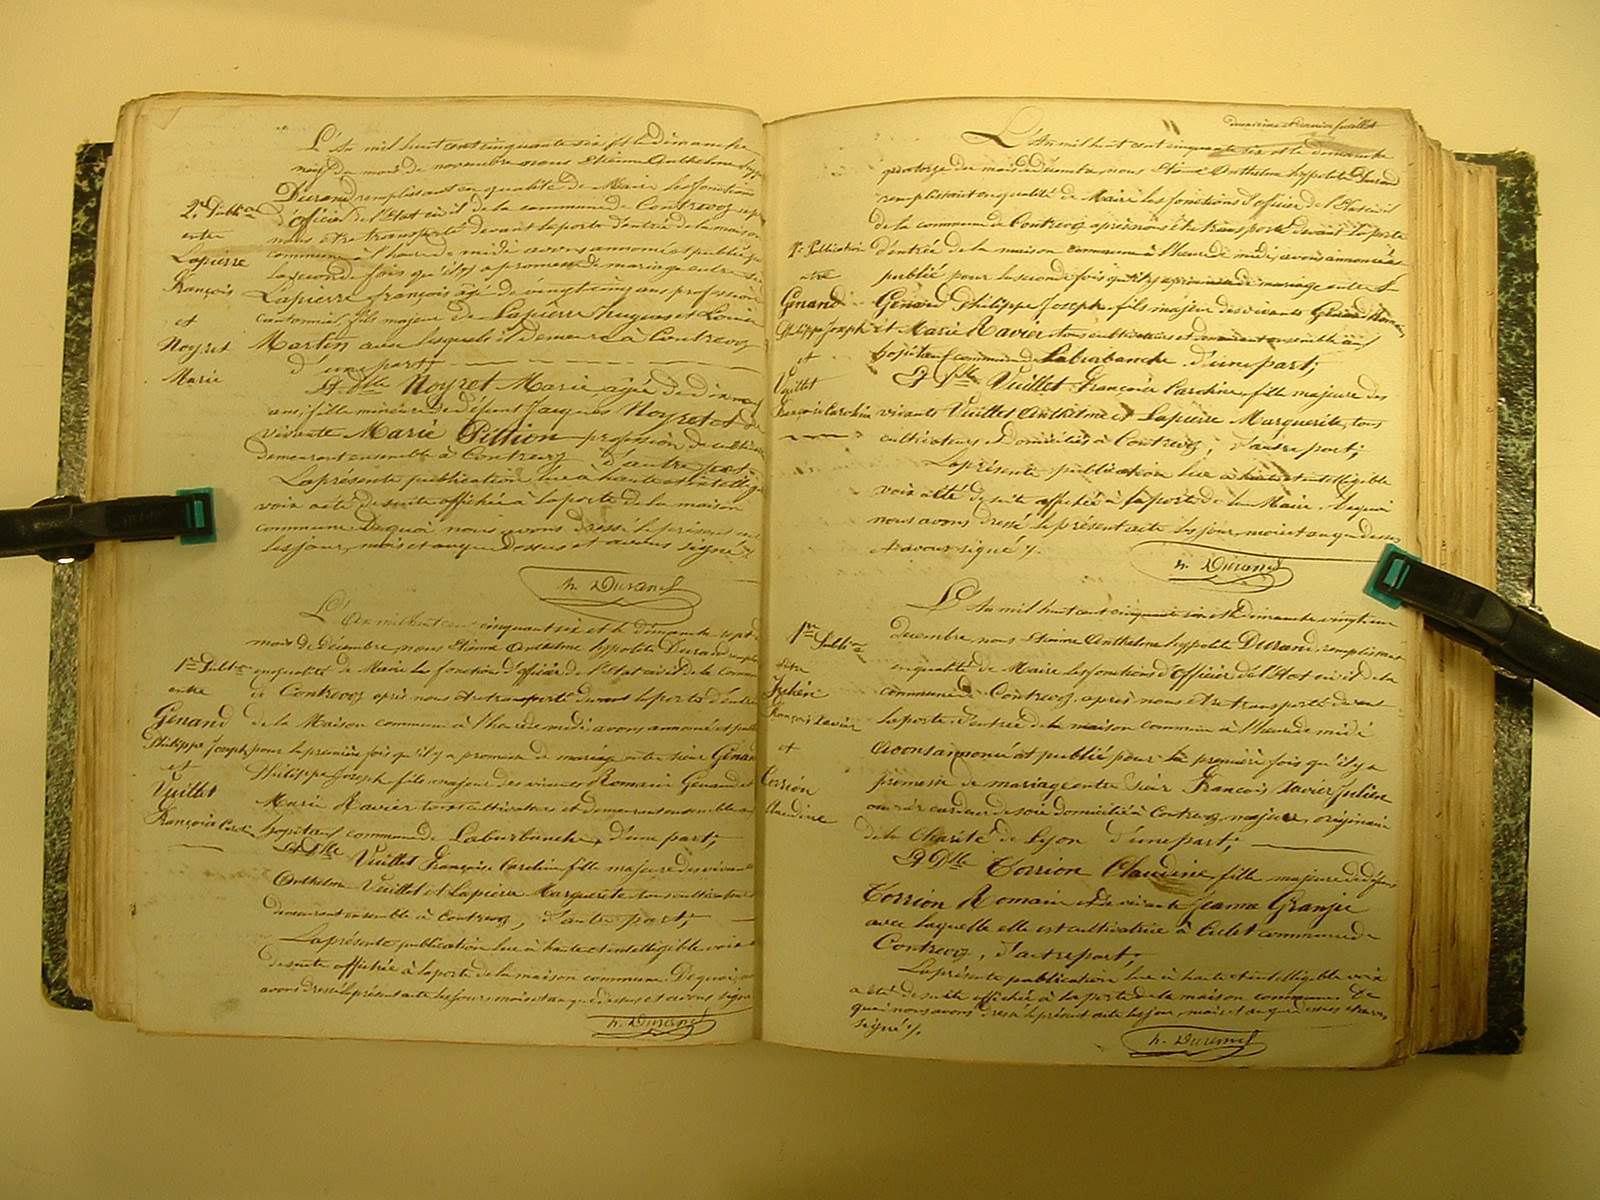 L'An mil huit cent cinquante six et le dimanche
neuf du mois de novembre nous Etienne Anthelme hyppolite
Durand remplissant en qualité de Maire les fonctions
d'officier de l'Etat civil de la commune de Contrevoz après
nous etre transporté devant la porte d'entrée de la maison
commune à l'heure de midi avons annoncé et publié pour
la seconde fois qu'il y a promesse de mariage entre
Lapierre françois âgé de vingt cinq ans profession
cantonnier fils majeur de Lapierre hugues et Louise
Martin avec lesquels il demeure à Contrevoz
d'une part;
2e Publion
entre
Lapierre
François
et
Noyret
Marie
Et Dlle Noyret Marie, agée de dix neuf
ans, fille mineure de défunt Jacques Noyret et de
vivante Marie Pittion profession de cultivateur
demeurant ensemble à Contrevoz d'autre part.
La présente publication lue à haute et intelligible
voix a été de suite affichée à la porte de la maison
commune. De quoi nous avons dressé le présent acte
les jour, mois et an que dessus et avons signé
h. Durand
L'An mil huit cent cinquante six et le dimanche sept du
mois de décembre, nous Etienne Anthelme hyppolite Durand remplissant
en qualité de Maire les fonctions d'officier de l'Etat civil de la commune
de Contrevoz après nous etre transporté devant la porte d'entrée
de la Maison commune à l'heure de midi avons annoncé et publié
pour la première fois qu'il y a promesse de mariage entre sieur Génand
Philippe Joseph fils majeur des vivants Romain Génand et
Marie Ravier tous cultivateurs et demeurant ensemble au
hopitauf commune de Laburbanche, d'une part;
1re Publion
entre
Génand
Philippe Joseph
et
Vuillet
Françoise Caroline
Et Dlle Vuillet Françoise Caroline fille majeure des vivants
Anthelme Vuillet et Lapierre Marguerite tous cultivateurs
demeurant ensemble à Contrevoz, d'autre part;
La présente publication lue à haute et intelligible voix a
de suite affichée à la porte de la maison commune. De quoi nous
avons dressé le présent acte les jour, mois et an que dessus et avons signé
h. Durand
douzième et dernier feuillet
L'An mil huit cent cinquante six et le dimanche
quatorze du mois de décembre, nous Etienne Anthelme hyppolite Durand
remplissant en qualité de Maire les fonctions d'officier de l'Etat civil
de la commune de Contrevoz après nous être transporté devant la porte
d'entrée de la maison commune à l'heure de midi, avons annoncé et
publié pour la seconde fois qu'il y a promesse de mariage entre Sr
Génard Philippe Joseph fils majeur des vivants Génard Romain
et Marie Ravier tous cultivateurs et demeurant ensemble au
hopitauf commune de Labrabanche d'une part;
2e Publication
entre
Génand
Philippe Joseph
et
Vuillet
Françoise Caroline
Et Dlle Vuillet Françoise Caroline, fille majeure des
vivants Vuillet Anthelme et Lapierre Marguerite, tous
cultivateurs et domiciliés à Contrevoz, d'autre part;
La présente publication lue à haute et intelligible
voix a été de suite affichée à la porte de la Mairie. De quoi
nous avons dressé le présent acte les jour, mois et an que dessus
et avons signé
h. Durand
L'An mil huit cent cinquante six et le dimanche vingt un
decembre, nous Etienne Anthelme hyppolite Durand, remplissant
en qualité de Maire les fonctions d'Officier de l'Etat civil de la
commune de Contrevoz, après nous être transporté devant
la porte d'entrée de la maison commune à l'heure de midi
avons annoncé et publié pour la première fois qu'il y a
promesse de mariage entre Sieur François Xavier Julien
ouvrier cardeur de soie domicilié à Contrevoz, majeur, originaire
de la Charité de Lyon d'une part;
1re Publion
entre
Julien
François Xavier
et
Corrion
Claudine
Et Dlle Corrion Claudine fille majeure de défunt
Corrion Romain et de vivante Jeanne Granjie
avec laquelle elle est cultivatrice à commune de
Contrevoz, d'autre part;
La présente publication lue à haute et intelligible voix
a été de suite affichée à la porte de la maison commune. De
quoi nous avons dressé le présent acte les jour, mois et an que dessus et avons
signé
h. Durand